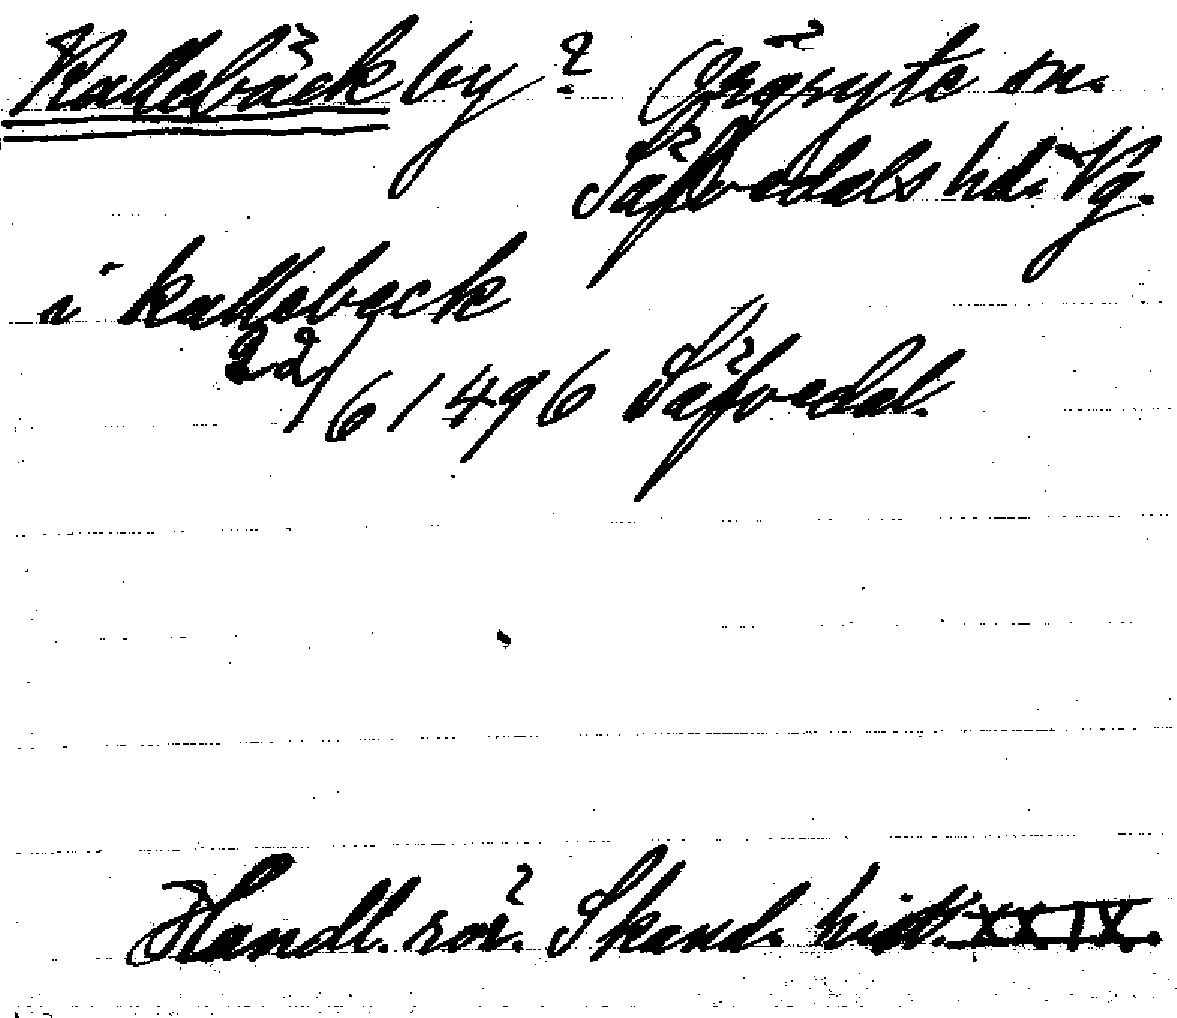 Kallebäck by? Örgryte sn.
Säfvedals hd. Vg.
i kallebeck
22/6 1496 Säfvedal.
Handl. rör. Skand. hist. XXIX.